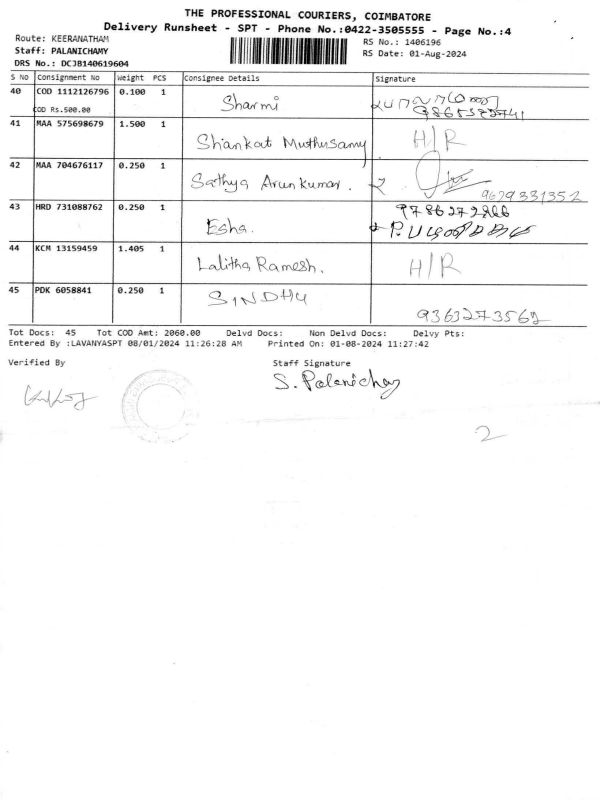 THE PROFESSIONAL COURIERS, COIMBATORE
Delivery Runsheet - SPT - Phone No.:0422-3505555 - Page No.:4
Route: KEERANATHAM
RS No.: 1406196
Staff: PALANICHAMY
RS Date: 01-Aug-2024
DRS No.: DCJB140619604
S No Consignment No Weight PCS Consignee Details Signature
40 COD 1112126796 0.100 1 Sharmi
COD Rs.500.00
41 MAA 575698679 1.500 1 Shankat Muthusamy H/R
42 MAA 704676117 0.250 1 Sathya Arunkumar.
9629331352
43 HRD 731088762 0.250 1 Esha.
44 KCM 13159459 1.405 1 Lalitha Ramesh. H/R
45 PDK 6058841 0.250 1 SINDHU
9363273562
Tot Docs: 45 Tot COD Amt: 2060.00 Delvd Docs: Non Delvd Docs: Delvy Pts:
Entered By :LAVANYASPT 08/01/2024 11:26:28 AM Printed On: 01-08-2024 11:27:42
Verified By Staff Signature
S. Palanichay
2